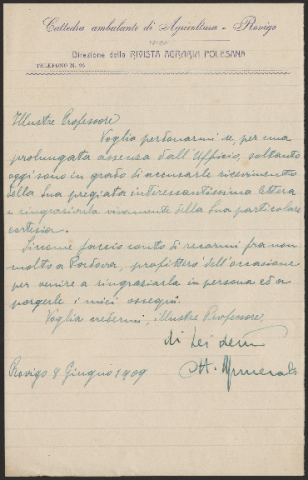 Cattedra ambulante di Agricoltura - Rovigo
Direzione della RIVISTA AGRARIA POLESANA
TELEFONO N. 95
Illustre Professore
Voglia perdonarmi se, per una
prolungata assenza dall'Ufficio, soltanto
oggi sono in grado di accusarle ricevimento
della Sua pregiata interessantissima lettera
e ringraziarla vivamente della Sua particolare
cortesia.
Siccome faccio conto di recarmi fra non
molto a Padova, profitterò dell'occasione
per venire a ringraziarla in persona ed a
porgerle i miei ossequi.
Voglia credermi, illustre Professore,
di Lei dev.mo
Rovigo 8 Giugno 1909